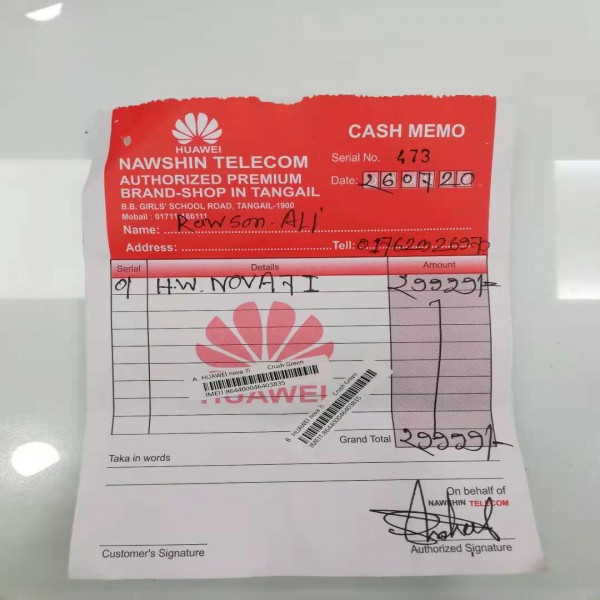 HUAWEI
NAWSHIN TELECOM
AUTHORIZED PREMIUM
BRAND-SHOP IN TANGAIL
B.B. GIRLS' SCHOOL ROAD, TANGAIL-1900
Moball :
CASH MEMO
Serial No. 473
Date: 260720
Name: Rowson ALI
Address: Tell:
Serial Details Amount
01 H.W. NOVA 7 I 29999/-
A HUAWEI nova 7i Crush Green
IMEI1:864400046403835
HUAWEI
B HUAWEI nova 7i Crush Green
IMEI1:864400046403835
Grand Total 29999/-
Taka in words
On behalf of
NAWSHIN TELECOM
Customer's Signature
Authorized Signature